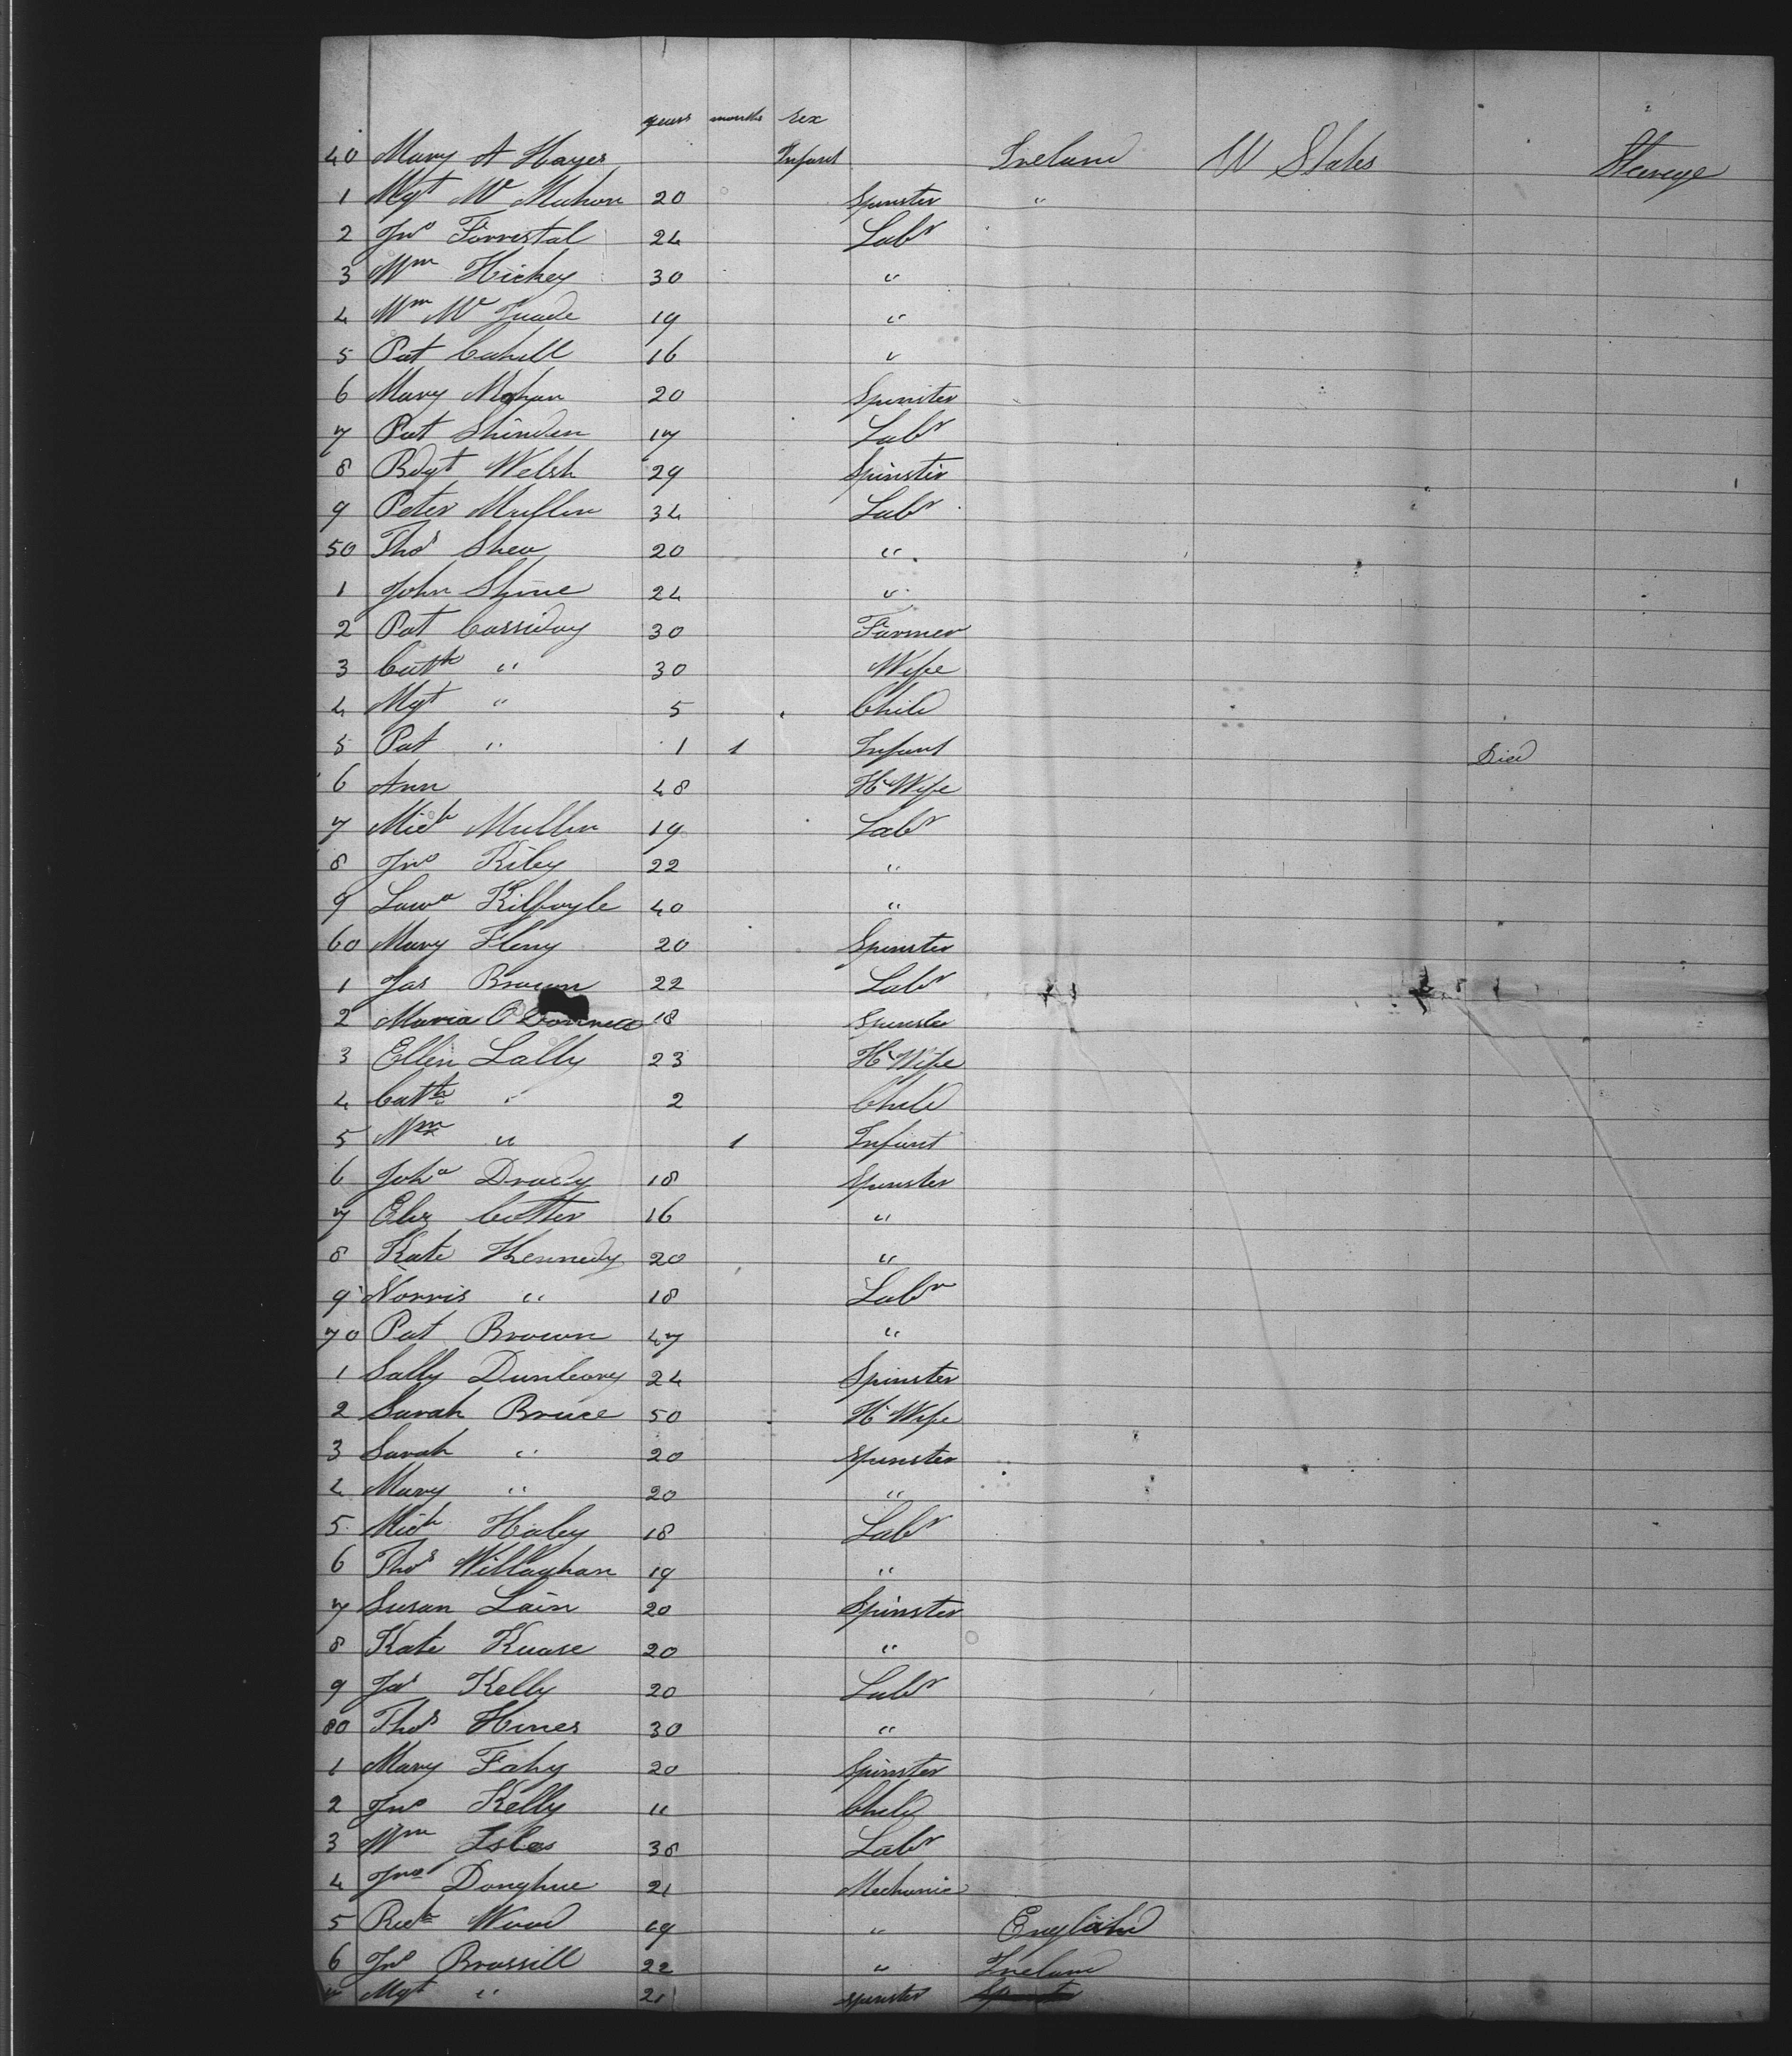 years months sex
40 Mary A Hayes Infant Ireland U States Steerage
1 Mgt Mc Mahon 20 Spinster "
2 Jno Forrestal 24 Labr
3 Wm Hickey 30 "
4 Wm Mc Quade 19 "
5 Pat Cahill 16 "
6 Mary Mahan 20 Spinster
7 Pat Shinden 17 Labr
8 Bdgt Welsh 29 Spinster
9 Peter Mullin 34 Labr
50 Thos Shea 20 "
1 John Shine 24 "
2 Pat Cassiday 30 Farmer
3 Cath " 30 Wife
4 Mgt " 5 Child
5 Pat " 1 1 Infant Died
6 Ann 48 H Wife
7 Mich Mullin 19 Labr
8 Jno Riley 22 "
9 Lawe Kilfoyle 40 "
60 Mary Fleny 20 Spinster
1 Jas Brown 22 Labr
2 Maria O'Donnell 18 Spinster
3 Ellen Lally 23 H Wife
4 Cath " 2 Child
5 Wm " 1 Infant
6 Joha Drady 18 Spinster
7 Eliz Cotter 16 "
8 Kate Kennedy 20 "
9 Norris " 18 Labr
70 Pat Brown 47 "
1 Sally Dunleavy 24 Spinster
2 Sarah Bruce 50 H Wife
3 Sarah " 20 Spinster
4 Mary " 20 "
5 Mich Haley 18 Labr
6 Thos Willaghan 19 "
7 Susan Lain 20 Spinster
8 Kate Kuare 20 "
9 Jas Kelly 20 Labr
80 Thos Hines 30 "
1 Mary Fahy 20 Spinster
2 Jno Kelly 11 Child
3 Wm Isles 38 Labr
4 Jno Donghue 21 Mechanic
5 Rich Wood 19 " England
6 Jno Brassill 22 " Ireland
7 Mgt " 21 spinster